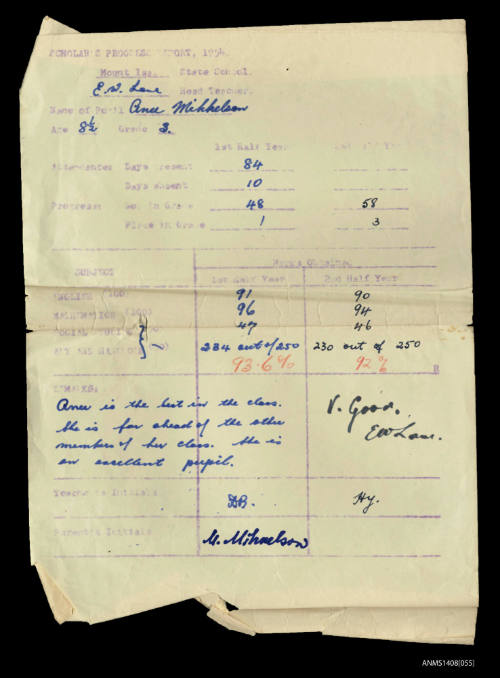 SCHOLAR'S PROGRESS REPORT, 1954.
Mount Isa. State School.
E.W. Lane Head Teacher.
Name of Pupil Anee Mikkelson
Age 8½ Grade 3.
1st Half Year 2nd Half Year
Attendance: Days present 84
Days absent 10
Progress: No. in Grade 48 58
Place in Grade 1 3
Marks Obtained.
SUBJECT 1st Half Year 2nd Half Year
ENGLISH (100) 91 90
MATHEMATICS (100) 96 94
SOCIAL 47 46
234 out of 250 230 out of 250
93.6% 92%
REMARKS:
Anee is the best in the class. V. Good.
She is far ahead of the other EWLane.
members of her class. She is
an excellent pupil.
Teacher's Initials DB. Hy.
Parent's Initials
M. Mikkelson
ANMS1408[055]